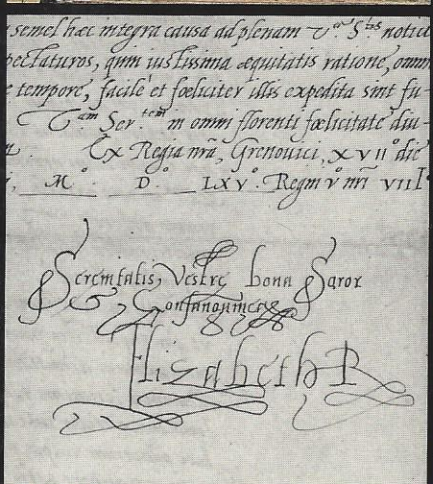 semel hæc integra causa ad plenam V.ᵃᵉ S.ᵗⁱˢ notici
pectaturos, quin iustissima æquitatis ratione, omni
e tempore, facile et fœliciter illis expedita sint fu-
V.ᵃᵐ Ser.ᵗᵉᵐ in omni florenti fœlicitate diu-
Ex Regia nrã, Grenovici, XVIIº die
Mº. Dº. LXV. Regni vº nri VIIIº
Serenitatis Vestrę bona Soror
& Consanguinea
Elizabeth R